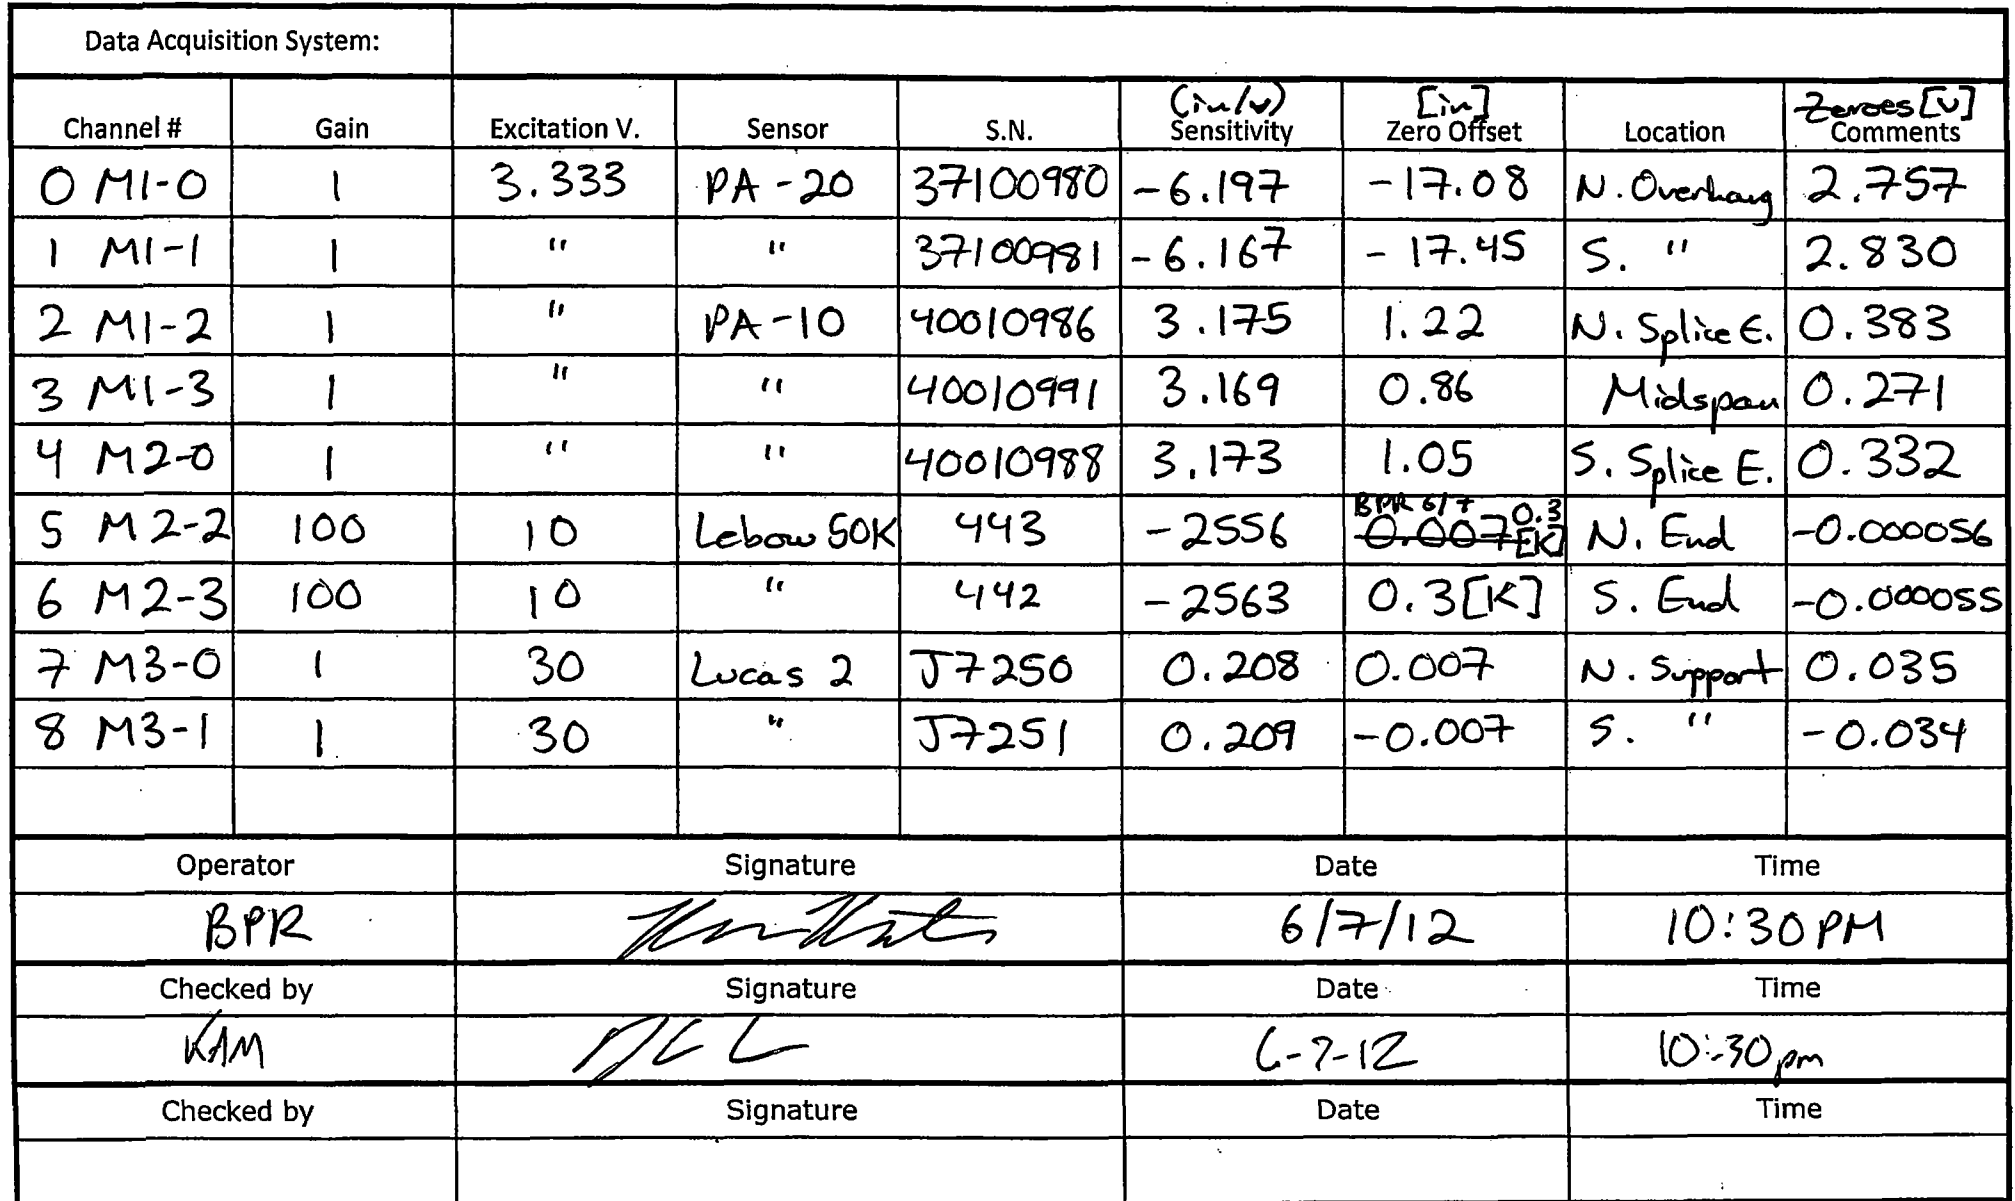 Data Acquisition System:
Channel # Gain Excitation V. Sensor S.N. (in/v) Sensitivity [in] Zero Offset Location Zeroes [v] Comments
0 M1-0 1 3.333 PA-20 37100980 -6.197 -17.08 N. Overhang 2.757
1 M1-1 1 " " 37100981 -6.167 -17.45 S. " 2.830
2 M1-2 1 " PA-10 40010986 3.175 1.22 N. Splice E. 0.383
3 M1-3 1 " " 40010991 3.169 0.86 Midspan 0.271
4 M2-0 1 " " 40010988 3.173 1.05 S. Splice E. 0.332
5 M2-2 100 10 Lebow 50K 443 -2556 BPR 6/7 0.3 0.007 [K] N. End -0.000056
6 M2-3 100 10 " 442 -2563 0.3 [K] S. End -0.000055
7 M3-0 1 30 Lucas 2 J7250 0.208 0.007 N. Support 0.035
8 M3-1 1 30 " J7251 0.209 -0.007 S. " -0.034
Operator Signature Date Time
BPR 6/7/12 10:30 PM
Checked by Signature Date Time
KAM 6-7-12 10:30 pm
Checked by Signature Date Time